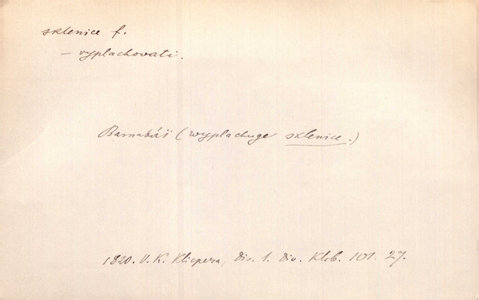 sklenice f.
– vyplachovati.
Barnabáš (wyplachuge sklenice.)
1820. V. K. Klicpera, Div. 1. Div. Klob. 101. 27.